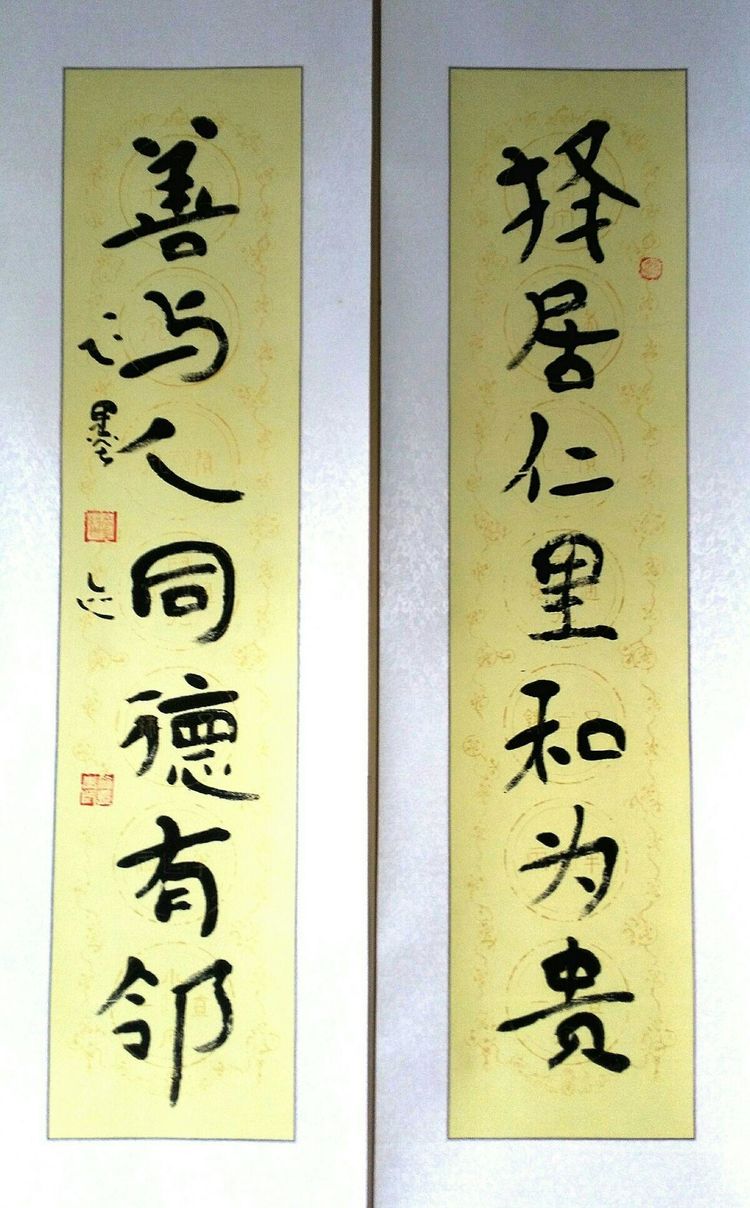 择居仁里和为贵
善与人同德有邻